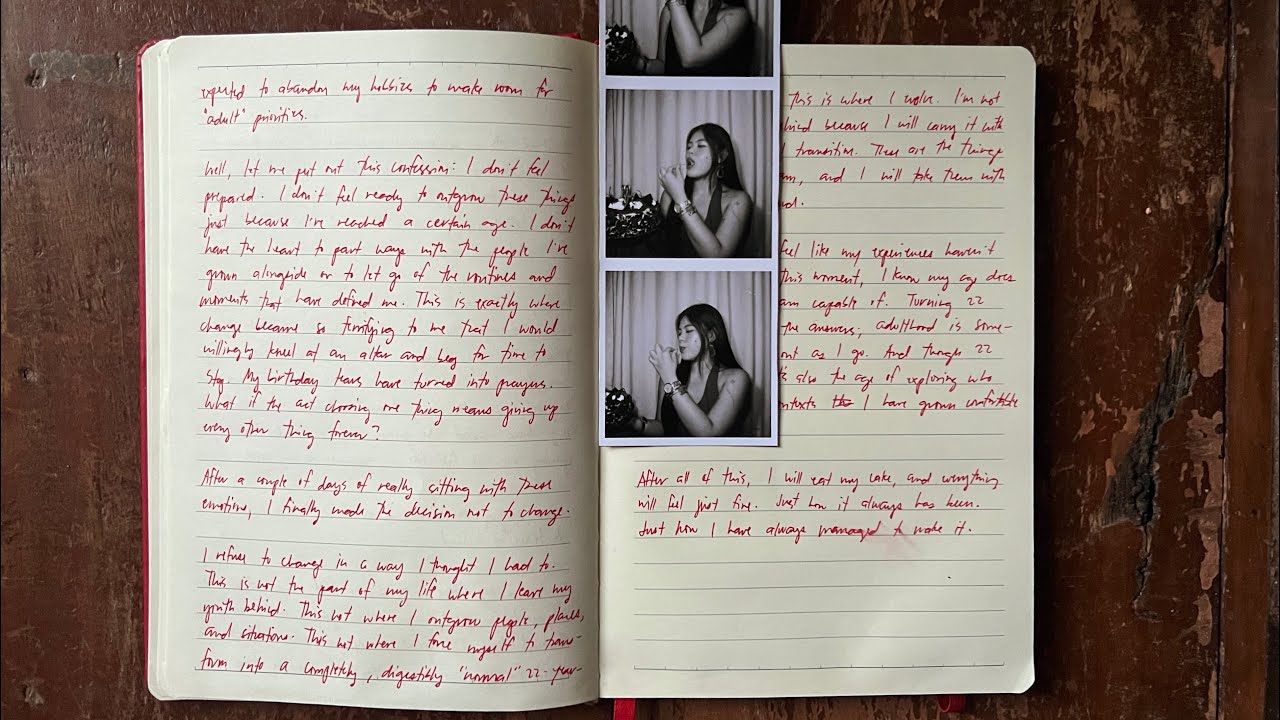 expected to abandon my hobbies to make room for
"adult" priorities.
Well, let me put out this confession: I don't feel
prepared. I don't feel ready to outgrow these things
just because I've reached a certain age. I don't
have the heart to part ways with the people I've
grown alongside or to let go of the routines and
moments that have defined me. This is exactly where
change became so terrifying to me that I would
willingly kneel at an altar and beg for time to
stop. My birthday tears have turned into prayers.
What if the act choosing one thing means giving up
every other thing forever?
After a couple of days of really sitting with these
emotions, I finally made the decision not to change.
I refuse to change in a way I thought I had to.
This is not the part of my life where I leave my
youth behind. This not where I outgrow people, places,
and situations. This not where I force myself to trans-
form into a completely, digestibly "normal" 22-year-
This is where I evolve. I'm not
because I will carry it with
transition. These are the things
and I will take them with
feel like my experiences haven't
this moment, I know my age does
capable of. Turning 22
the answers; adulthood is some-
as I go. And though 22
also the age of exploring who
I have grown comfortable
After all of this, I will eat my cake, and everything
will feel just fine. Just how it always has been.
Just how I have always managed to make it.